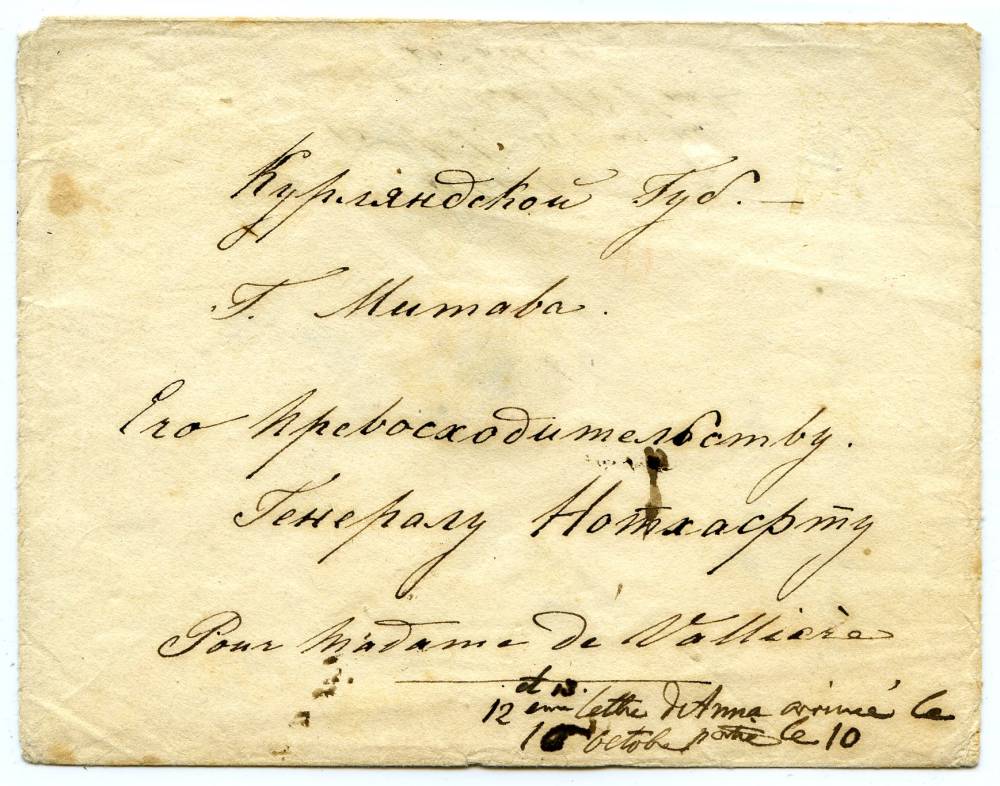 Курляндской Губ. —
Г. Митава.
Его Превосходительству.
Генералу Нотхафту
Pour Madame de Vallière
et 13.
12 ème lettre d'Anna arrivée le
16 octobre partie le 10